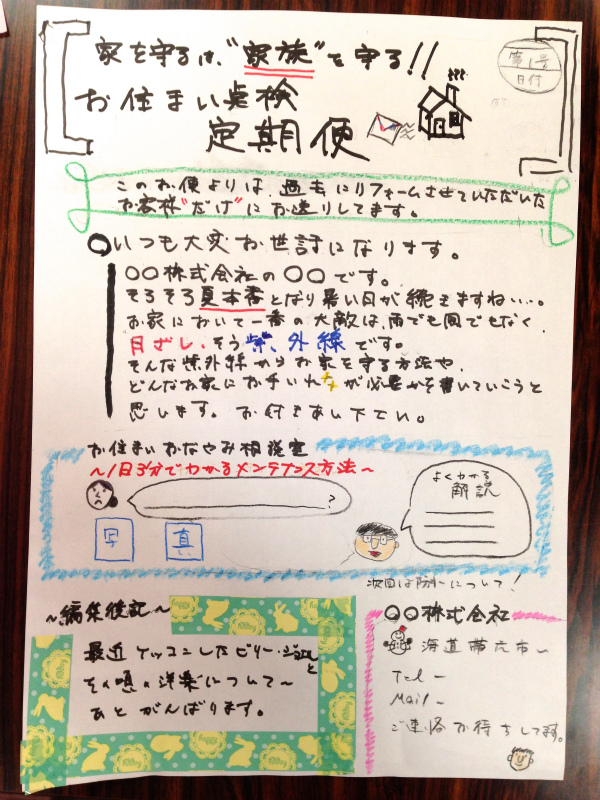 家を守るは、"家族"を守る!!
第1号
日付
お住まい点検
定期便
このお便よりは 過去にリフォームさせていただいた
お客様"だけ"にお送りしてます。
いつも大変お世話になります。
〇〇株式会社の〇〇です。
そろそろ夏本番となり暑い日が続きますね…。
お家において一番の大敵は、雨でも風でもなく、
日ざし、そう紫外線です。
そんな紫外線からお家を守る方法や、
どんなお家にお手いれなが必要かを書いていこうと
思します。お付きあい下さい。
お住まいおなやみ相談室
～1日3分でわかるメンテナンス方法～
?
よくわかる
解説
写
真
次回は防水について!
～編集後記～
最近 ケッコンしたビリー・ジョエルと
その頃の洋楽について～
あと がんばります。
〇〇株式会社
海道帯広市～
Tel～
Mail～
ご連絡お待ちしてます。